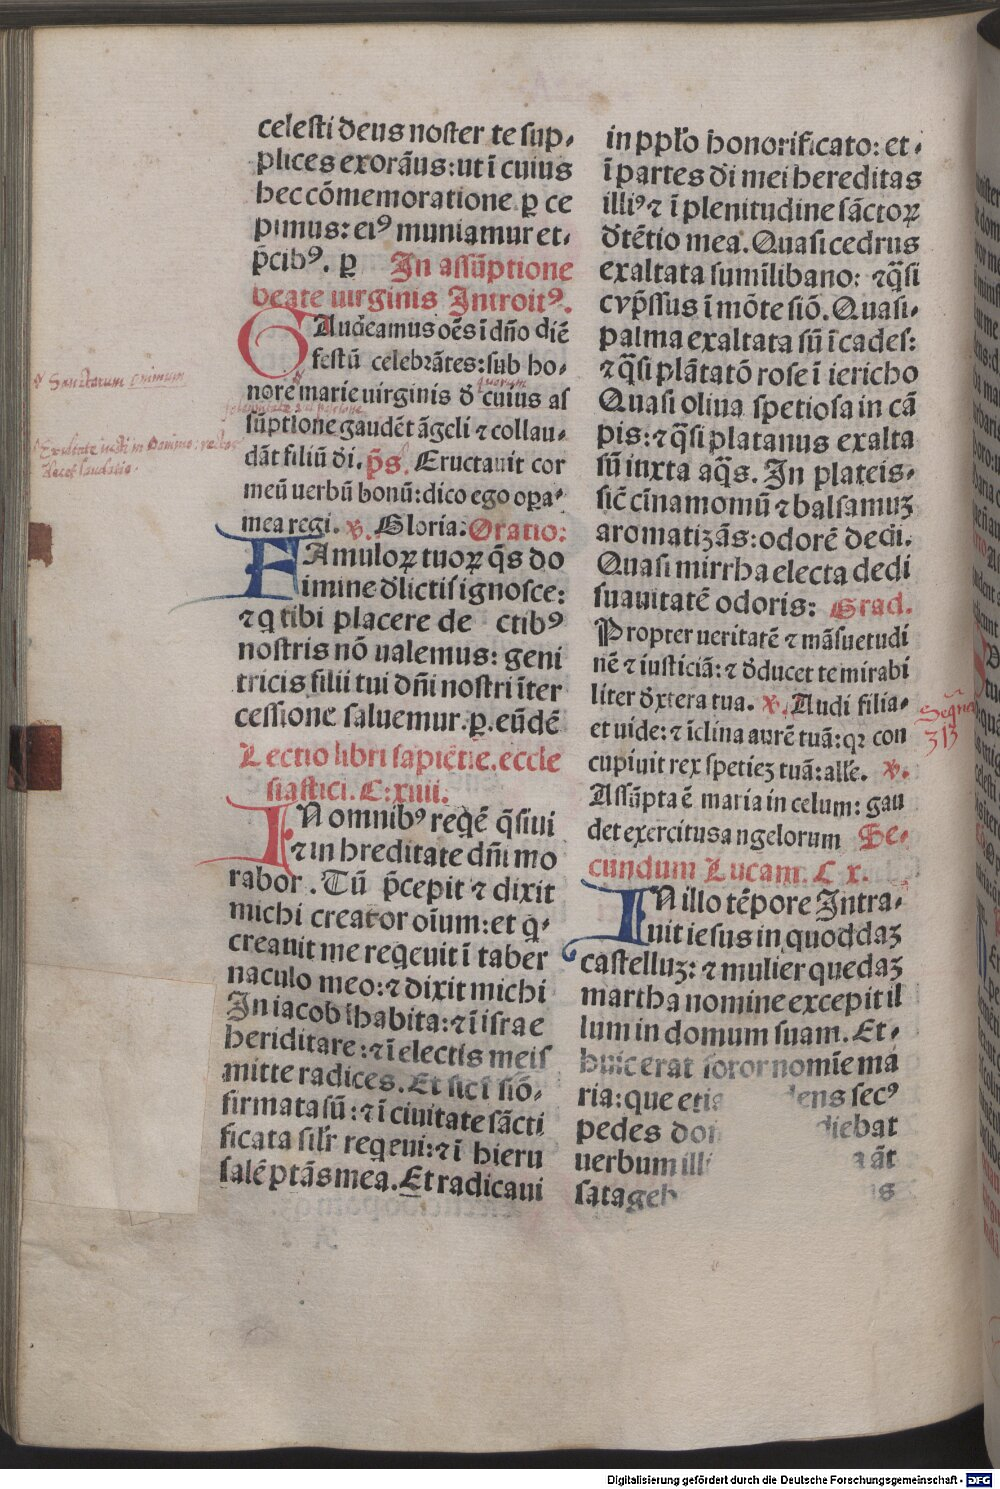 celesti deus noster te sup⸗
plices exorãus: ut ĩ cuius
hec cõmemoratione ꝑ ce
pimus: eiꝰ muniamur et⸗
p̃cibꝰ. ꝑ In assũptione
beate uirginis Introitꝰ.
GAudeamus oẽs ĩ dño diẽ
festũ celebrãtes: sub ho⸗
nore marie uirginis d̕ cuius as
sũptione gaudẽt ãgeli ⁊ collau⸗
dãt filiũ di. p̃s. Eructauit cor
meũ uerbũ bonũ: dico ego opa⸗
mea regi. ꝟ. Gloria: Oratio:
FAmuloꝝ tuoꝝ q̃s do
imine d̕lictis ignosce:
⁊ q tibi placere de ctibꝰ
nostris nõ ualemus: geni
tricis filii tui dñi nostri ĩter
cessione saluemur. ꝑ. eũdẽ
Lectio libri sapiẽtie. eccle
siastici. C: xiiii.
IN omnibꝰ reqẽ q̃siui
⁊ in hreditate dñi mo
rabor. Tũ p̃cepit ⁊ dixit
michi creator oĩum: et q⸗
creauit me reqeuit ĩ taber
naculo meo: ⁊ dixit michi
In iacob ĩhabita: ⁊ ĩ israe
heriditare: ⁊ ĩ electis meis
mitte radices. Et sic ĩ siõ⸗
firmata sũ: ⁊ ĩ ciuitate sãcti
ficata silr̃ reqeui: ⁊ ĩ hieru
salẽ ptãs mea. Et radicaui
in ppl̃o honorificato: et⸗
ĩ partes di mei hereditas
illiꝰ ⁊ ĩ plenitudine sãctoꝝ
d̕tẽtio mea. Quasi cedrus
exaltata sum ĩ libano: ⁊ q̃si
cyp̃ssus ĩ mõte siõ. Quasi⸗
palma exaltata sũ ĩ cades:
⁊ q̃si plãtatõ rose ĩ iericho
Quasi oliua spetiosa in cã
pis: ⁊ q̃si platanus exalta
sũ iuxta aq̃s. In plateis⸗
sic̃ cĩnamomũ ⁊ balsamuꝫ
aromatizãs: odorẽ dedi.
Quasi mirrha electa dedi
suauitatẽ odoris: Grad.
Propter ueritatẽ ⁊ mãsuetudi
nẽ ⁊ iusticiã: ⁊ d̕ducet te mirabi
liter d̕xtera tua. ꝟ. Audi filia⸗
et uide: ⁊ ĩclina aurẽ tuã: qꝛ con
cupiuit rex spetieꝫ tuã: all̕e. ꝟ.
Assũpta ẽ maria in celum: gau
det exercitus angelorum Se⸗
cundum Lucam. C x.
IN illo tẽpore Intra⸗
uit iesus in quoddaꝫ
castelluꝫ: ⁊ mulier quedaꝫ
martha nomine excepit il
lum in domum suam. Et⸗
huic erat soror nomĩe ma
ria: que etia dens secꝰ
pedes do diebat
uerbum illi a ãt
satageb s
Sanctarum
quorum
Exultate iusti in Domino:
313
Digitalisierung gefördert durch die Deutsche Forschungsgemeinschaft - DFG